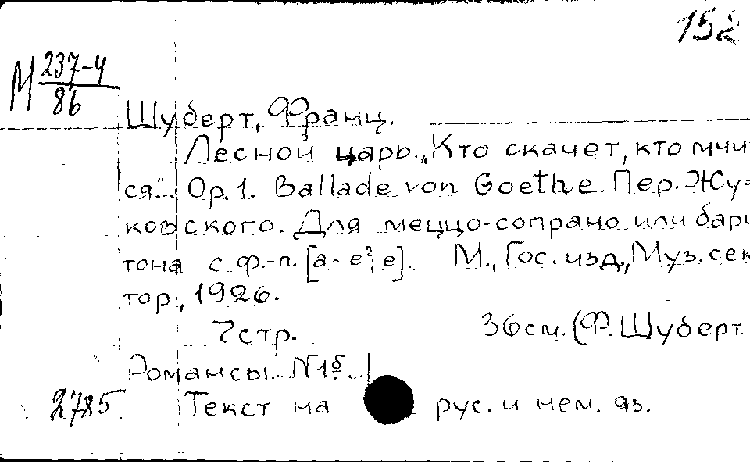 152
М 237-4
86
Шуберт, Франц.
Лесной царь. „Кто скачет, кто мчи
ся".. Op. 1. Ballade von Goethe. Пер. Жу-
ковского. Для меццо-сопрано или бари
тона с ф.-п. [a - e²; e]. М., Гос. изд., Муз. сек
тор, 1926.
7 стр. 36 см. (Ф. Шуберт
Романсы. N 1б.
2785. Текст на рус. и нем. яз.